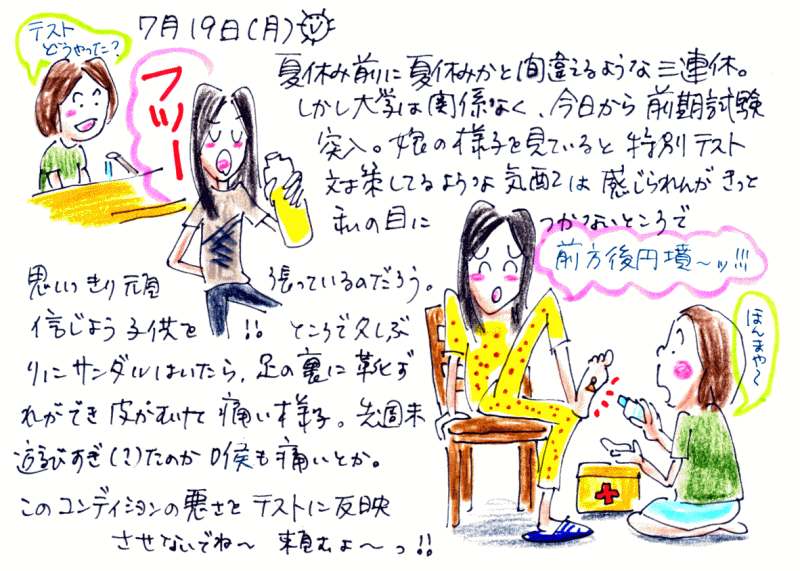 7月19日(月)
テスト
どうやった?
フツー
夏休み前に夏休みかと間違えるような三連休。
しかし大学は関係なく、今日から前期試験
突入。娘の様子を見ていると特別テスト
対策してるような気配は感じられんがきっと
私の目につかないところで
思いっきり頑張っているのだろう。
信じよう子供を!! ところで久しぶ
りにサンダルはいたら、足の裏に靴ず
れができ皮がむけて痛い様子。先週末
遊びすぎ(?)たのか喉も痛いとか。
このコンディションの悪さをテストに反映
させないでね〜 頼むよ〜っ!!
前方後円墳〜ッ!!!
ほんまや〜